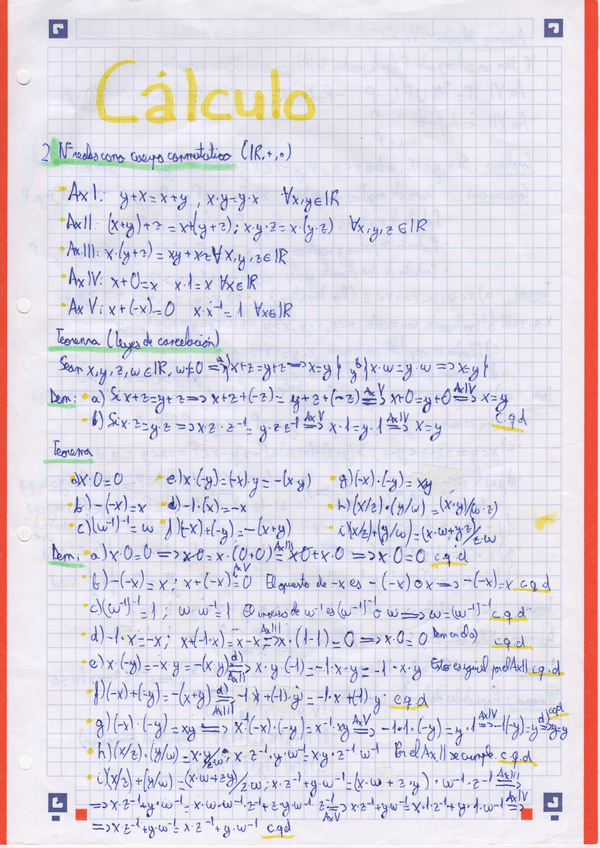 Cálculo
2 Nº reales como cuerpo conmutativo (IR,+,·)
· Ax I: y+x=x+y , x·y=y·x ∀x,y∈IR
· Ax II: (x+y)+z=x+(y+z); x·y·z=x·(y·z) ∀x,y,z∈IR
· Ax III: x·(y+z)=xy+xz ∀x,y,z∈IR
· Ax IV: x+0=x x·1=x ∀x∈IR
· Ax V: x+(-x)=0 x·x⁻¹=1 ∀x∈IR
Teorema (leyes de cancelación)
Sean x,y,z,w∈IR, w≠0 => a) {x+z=y+z => x=y} y b) {x·w=y·w => x=y}
Dem: · a) Si x+z=y+z => x+z+(-z)= y+z+(-z) =Ax V=> x+0=y+0 =Ax IV=> x=y
· b) Si x·z=y·z => x·z·z⁻¹= y·z·z⁻¹ =Ax V=> x·1=y·1 =Ax IV=> x=y c.q.d
Teorema
· a) x·0=0 · e) x·(-y)=(-x)·y=-(x·y) · g) (-x)·(-y)=xy
· b) -(-x)=x · d) -1·(x)=-x · h) (x/z)·(y/w)=(x·y)/(w·z)
· c) (w⁻¹)⁻¹=w · f) (-x)+(-y)=-(x+y) · i) (x/z)+(y/w)=(x·w+y·z)/z·w
Dem: · a) x·0=0 => x·0=x·(0+0) =Ax III= x·0+x·0 => x·0=0 c.q.d
· b) -(-x)=x; x+(-x)=0 Ax V El opuesto de -x es -(-x) o x => -(-x)=x c.q.d
· c) (w⁻¹)⁻¹=1; w·w⁻¹=1 El inverso de w⁻¹ es (w⁻¹)⁻¹ o w => w=(w⁻¹)⁻¹ c.q.d
· d) -1·x=-x; x+(-1·x)=x-x =Ax III=> x·(1-1)=0 => x·0=0 (dem en a) c.q.d
· e) x·(-y)=-x·y=-(x·y) =d) Ax II=> x·y·(-1)=-1·x·y=-1·x·y Esto es igual por el Ax II c.q.d
· f) (-x)+(-y)=-(x+y) =d) Ax III=> -1·x+(-1)·y=-1·x+(-1)·y c.q.d
· g) (-x)·(-y)=xy => x⁻¹(-x)·(-y)=x⁻¹·xy =Ax V=> -1·1·(-y)=y·1 =Ax IV=> -1(-y)=y =d)=> y=y c.q.d
· h) (x/z)·(y/w)=x·y/z·w; x·z⁻¹·y·w⁻¹=x·y·z⁻¹·w⁻¹ Por el Ax II se cumple c.q.d
· i) (x/z)+(y/w)=(x·w+z·y)/z·w; x·z⁻¹+y·w⁻¹=(x·w+z·y)·w⁻¹·z⁻¹ =Ax III=>
=> x·z⁻¹+y·w⁻¹=x·w·w⁻¹·z⁻¹+z·y·w⁻¹·z⁻¹ =Ax V=> x·z⁻¹+y·w⁻¹=x·1·z⁻¹+y·1·w⁻¹ =Ax IV=>
=> x·z⁻¹+y·w⁻¹=x·z⁻¹+y·w⁻¹ c.q.d